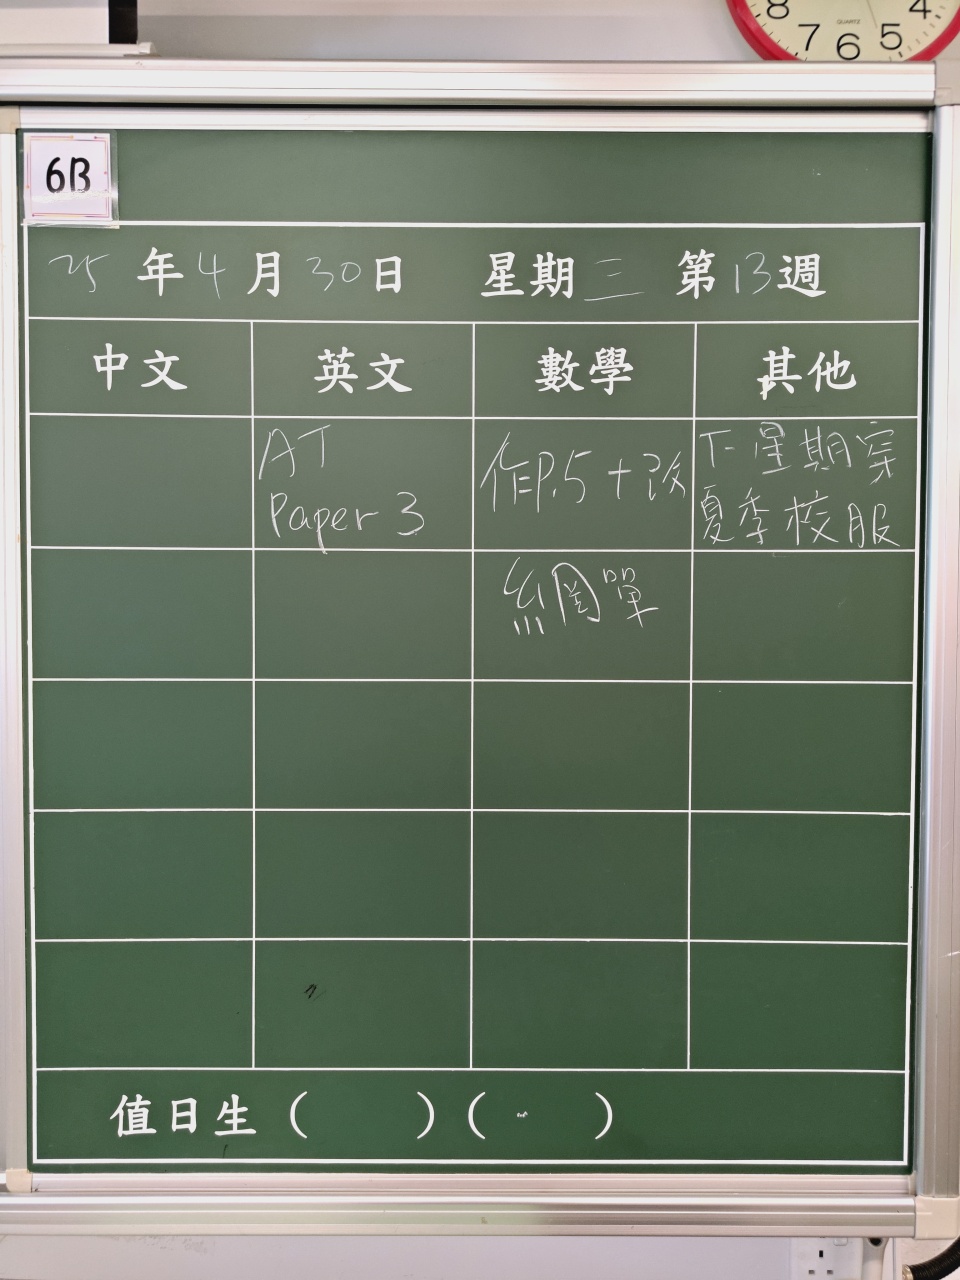 8 7 6 5 4
QUARTZ
6B
25年4月30日 星期三 第13週
中文 英文 數學 其他
AT
Paper 3
作P.5+改
下星期穿
夏季校服
網單
值日生( )( )